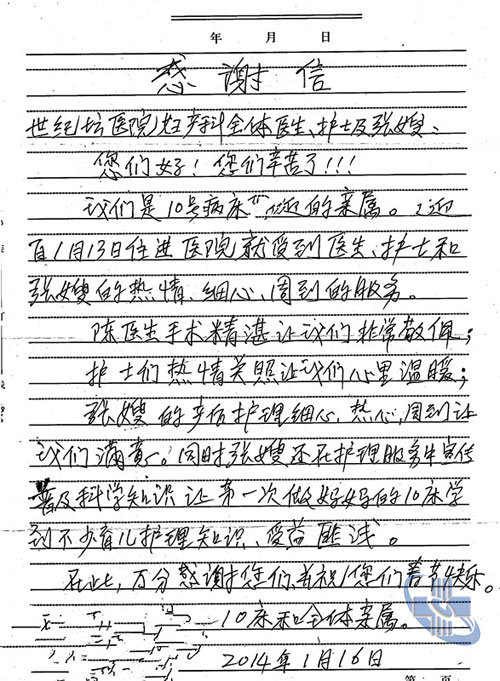 年 月 日
感谢信
世纪坛医院妇产科全体医生、护士及张嫂:
您们好!您们辛苦了!!!
我们是10号病床 的亲属。
自1月13日住进医院就受到医生、护士和
张嫂的热情、细心、周到的服务。
陈医生手术精湛让我们非常敬佩;
护士们热情关照让我们心里温暖;
张嫂的产后护理细心、热心、周到让
我们满意。同时张嫂还在护理服务中宣传
普及科学知识让第一次做妈妈的10床学
到不少育儿护理知识、受益匪浅。
在此,万分感谢您们并祝您们春节快乐。
10床和全体亲属。
2014年1月16日